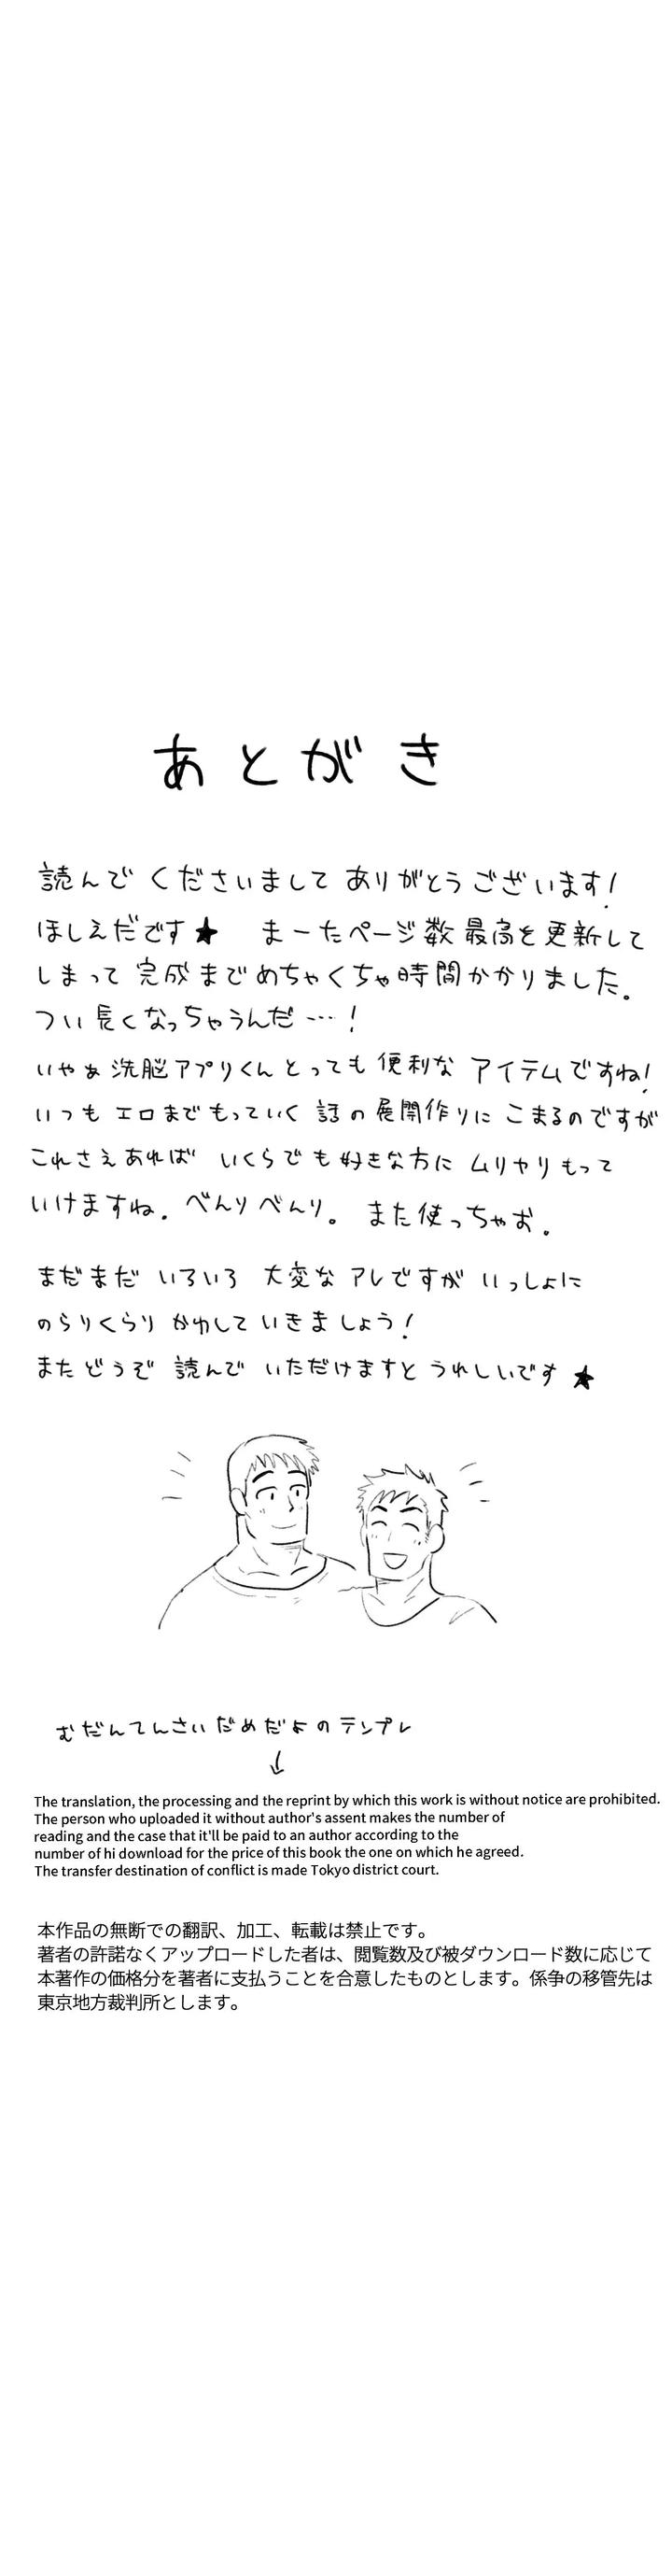 あとがき
読んで くださいまして ありがとう ございます!
ほしえだです★ まーたページ数 最高を更新して
しまって 完成までめちゃくちゃ時間かかりました。
つい長くなっちゃうんだ…!
いやぁ 洗脳アプリくん とっても 便利な アイテムですね!
いつも エロまで もっていく 話の展開作りに こまるのですが
これさえあれば いくらでも好きな方に ムリヤリもって
いけますね. べんりべんり。 また使っちゃお。
まだまだ いろいろ 大変な アレですが いっしょに
のらりくらり かわして いきましょう!
またどうぞ 読んで いただけますと うれしいです★
むだんてんさいだめだよのテンプレ
↓
The translation, the processing and the reprint by which this work is without notice are prohibited.
The person who uploaded it without author's assent makes the number of
reading and the case that it'll be paid to an author according to the
number of hi download for the price of this book the one on which he agreed.
The transfer destination of conflict is made Tokyo district court.
本作品の無断での翻訳、加工、転載は禁止です。
著者の許諾なくアップロードした者は、閲覧数及び被ダウンロード数に応じて
本著作の価格分を著者に支払うことを合意したものとします。係争の移管先は
東京地方裁判所とします。